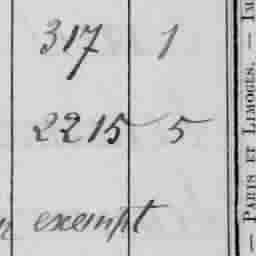 317 1
2215 5
exempt
— PARIS ET LIMOGES. —